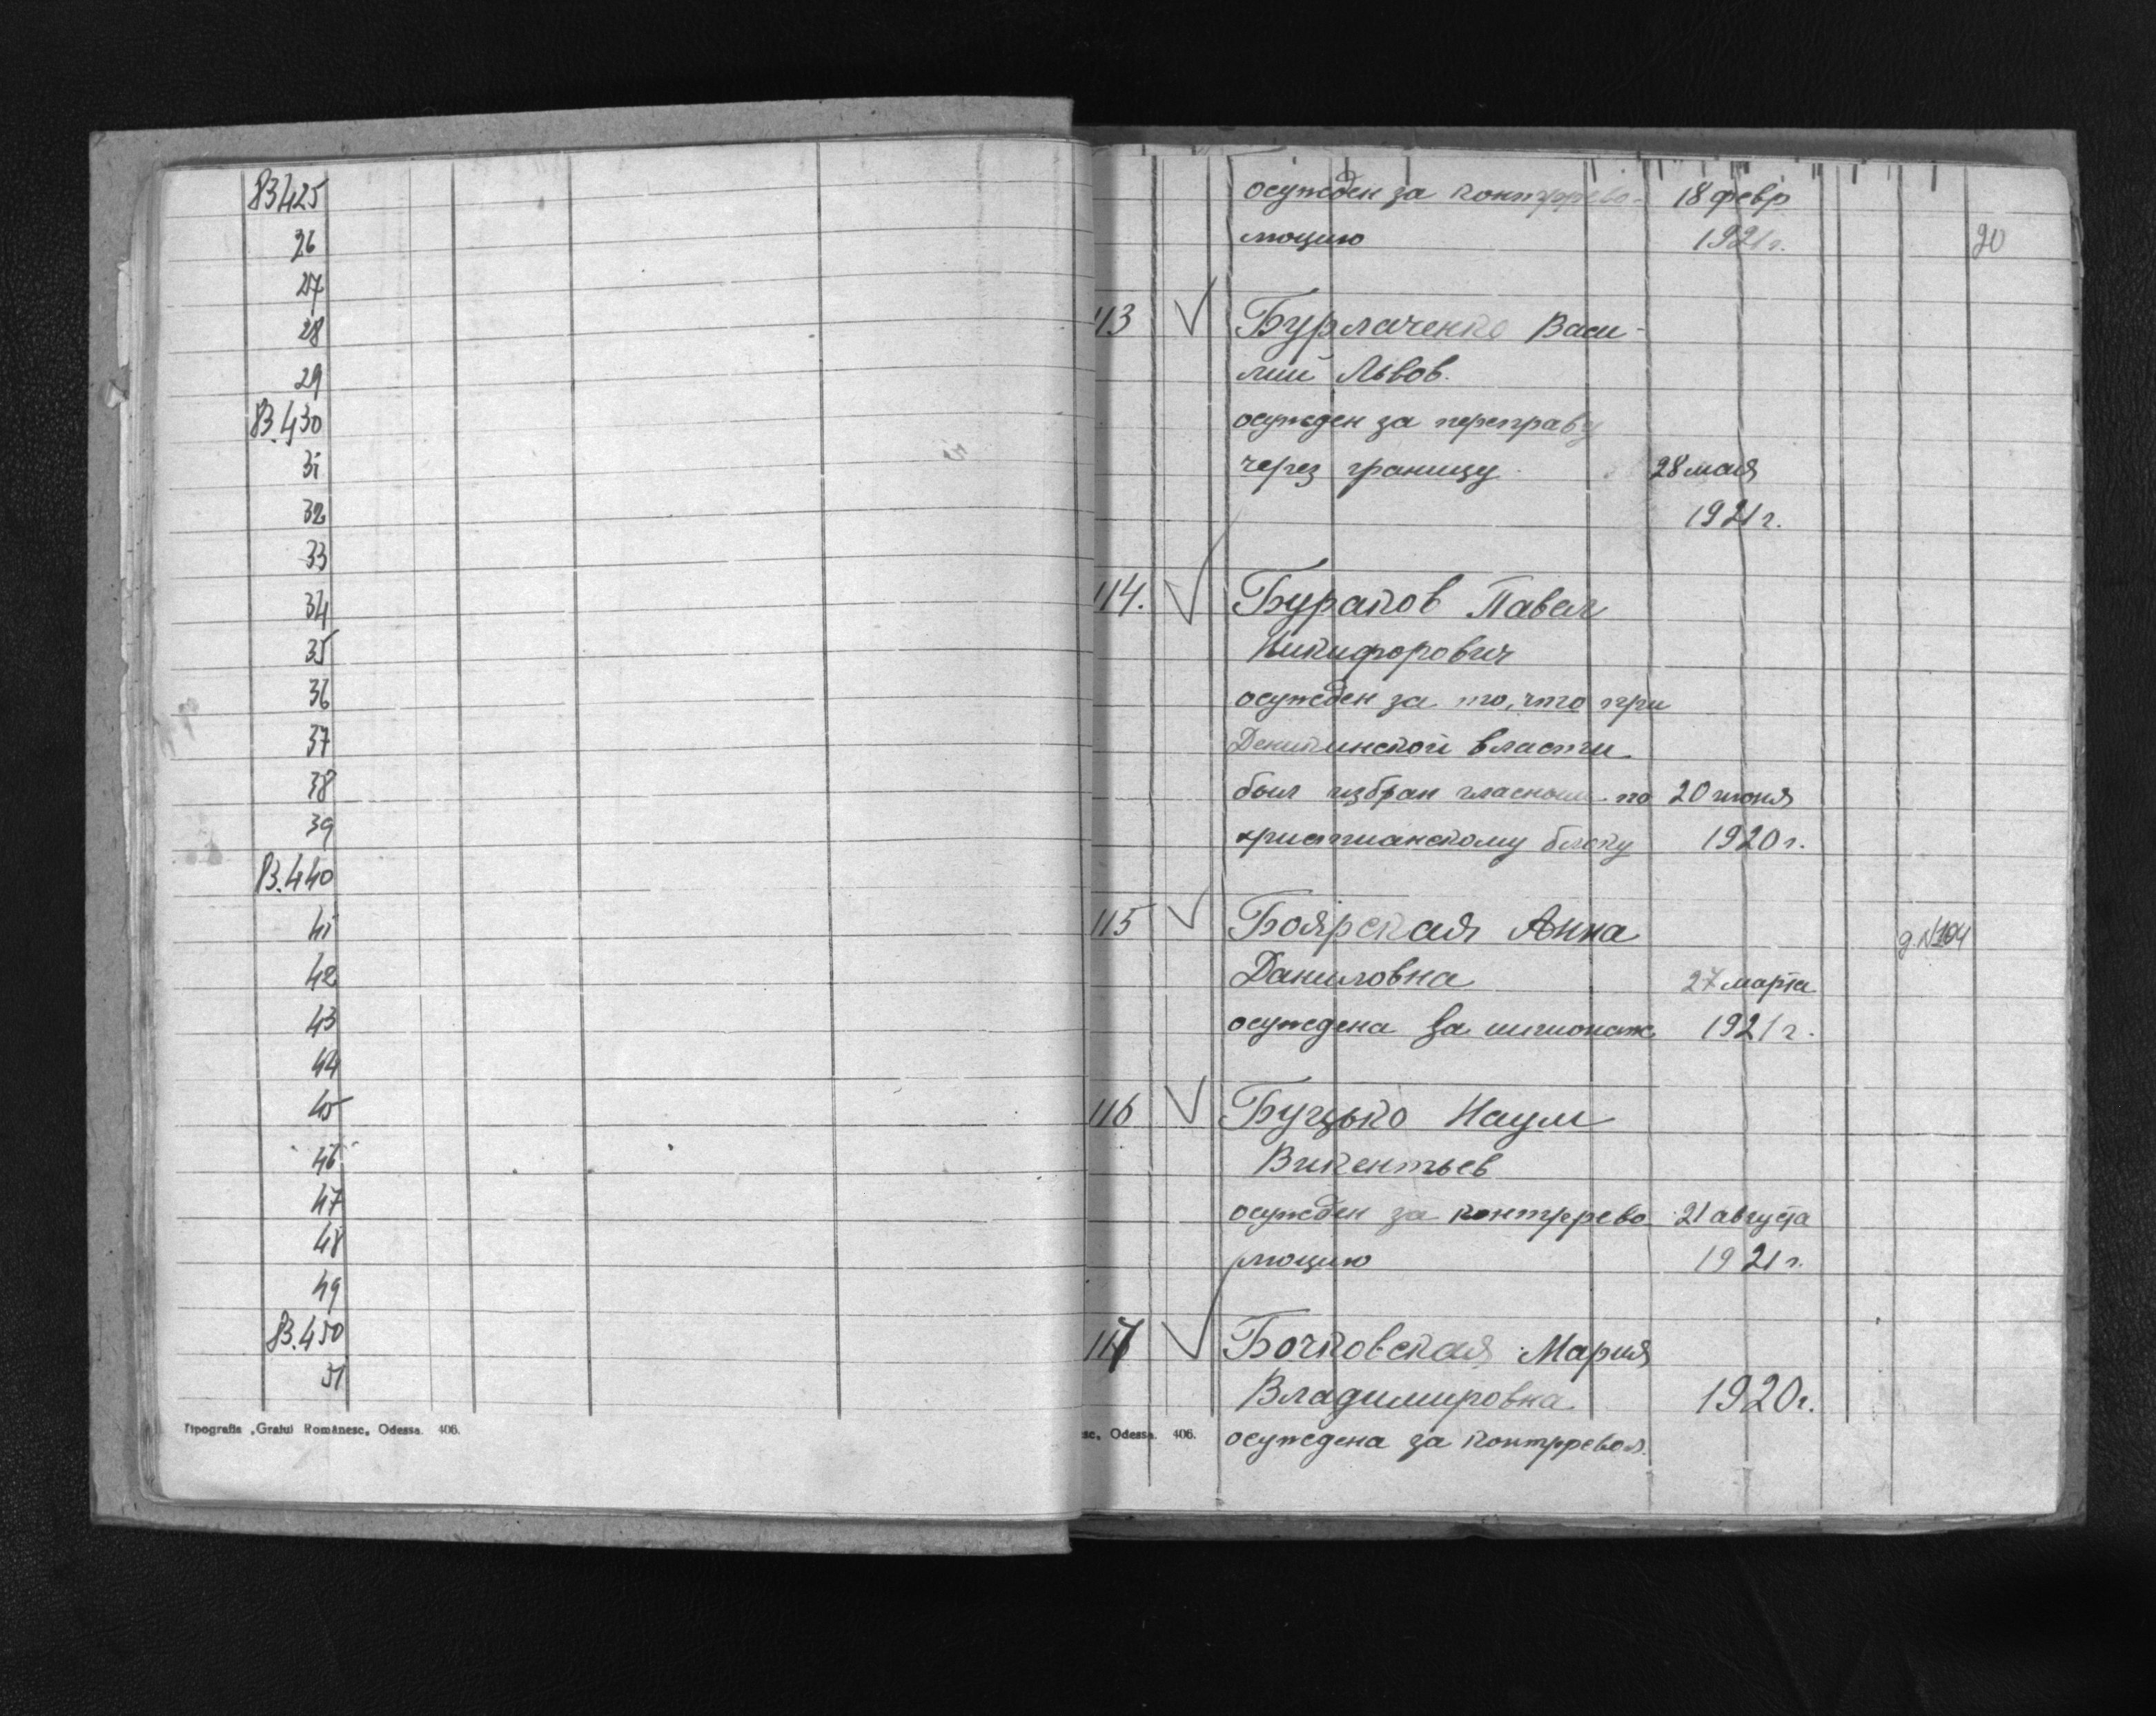 83425
26
27
28
29
83.430
31
32
33
34
35
36
37
38
39
83.440
41
42
43
44
45
46
47
48
49
83.450
51
Tipografia „Graiul Românesc„ Odessa. 406.
осужден за контррево- 18 февр
люцию 1921 г.
20
113 Бурлаченко Васи-
лий Львов.
осужден за переправу
через границу. 28 мая
1921 г.
114. Бураков Павел
Никифорович
осужден за то, что при
Деникинской власти
был избран гласным по 20 июня
христианскому блоку 1920 г.
115 Боярская Анна д.№104
Даниловна 27 марта
осуждена за шпионаж 1921 г.
116 Буцько Наум
Викентьев
осужден за контррево 21 августа
люцию 1921 г.
117 Бочковская Мария
Владимировна 1920 г.
sc„ Odessa. 406. осуждена за контрревол.